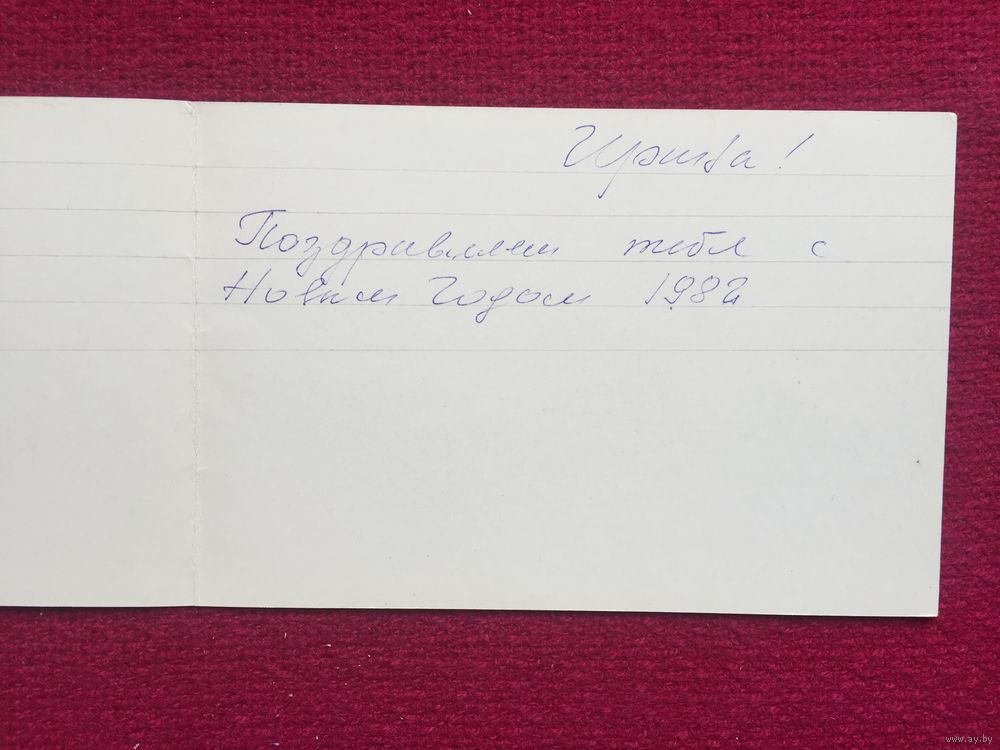 Ирина!
Поздравляем тебя с
Новым годом 1982
www.ay.by